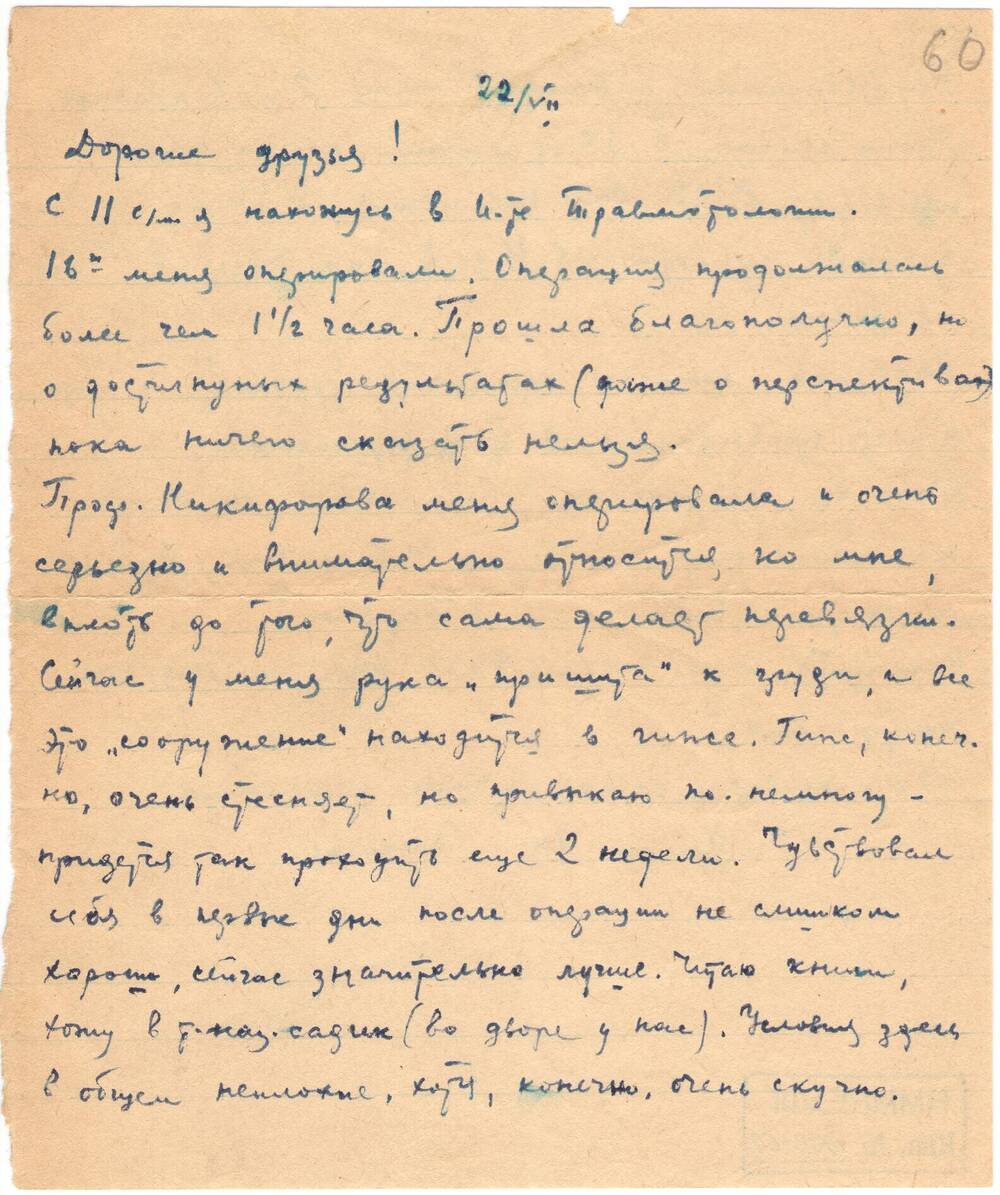 60
22/VII
Дорогие друзья!
С 11 с/м я нахожусь в И-те Травмотологии.
16го меня оперировали. Операция продолжалась
более чем 1 1/2 часа. Прошла благополучно, но
о достигнутых результатах (даже о перспективах)
пока ничего сказать нельзя.
Проф. Никифорова меня оперировала и очень
серьезно и внимательно относится ко мне,
вплоть до того, что сама делает перевязки.
Сейчас у меня рука „пришита" к груди, и все
это „сооружение" находится в гипсе. Гипс, конеч-
но, очень стесняет, но привыкаю по-немногу -
придется так проходить еще 2 недели. Чувствовал
себя в первые дни после операции не слишком
хорошо, сейчас значительно лучше. Читаю книги,
хожу в т. наз. садик (во дворе у нас). Условия здесь
в общем неплохие, хотя, конечно, очень скучно.